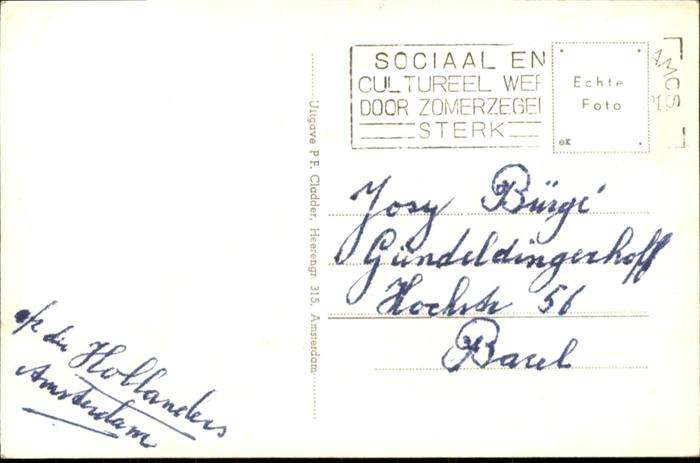 SOCIAAL EN
CULTUREEL WER
DOOR ZOMERZEGEL
STERK
Echte
Foto
ex
Uitgave P. F. Cladder, Heerengr. 315, Amsterdam
Josy Bürgi
Gundeldingerhoff
Hochstr 56
Basel
die Hollanders
Amsterdam